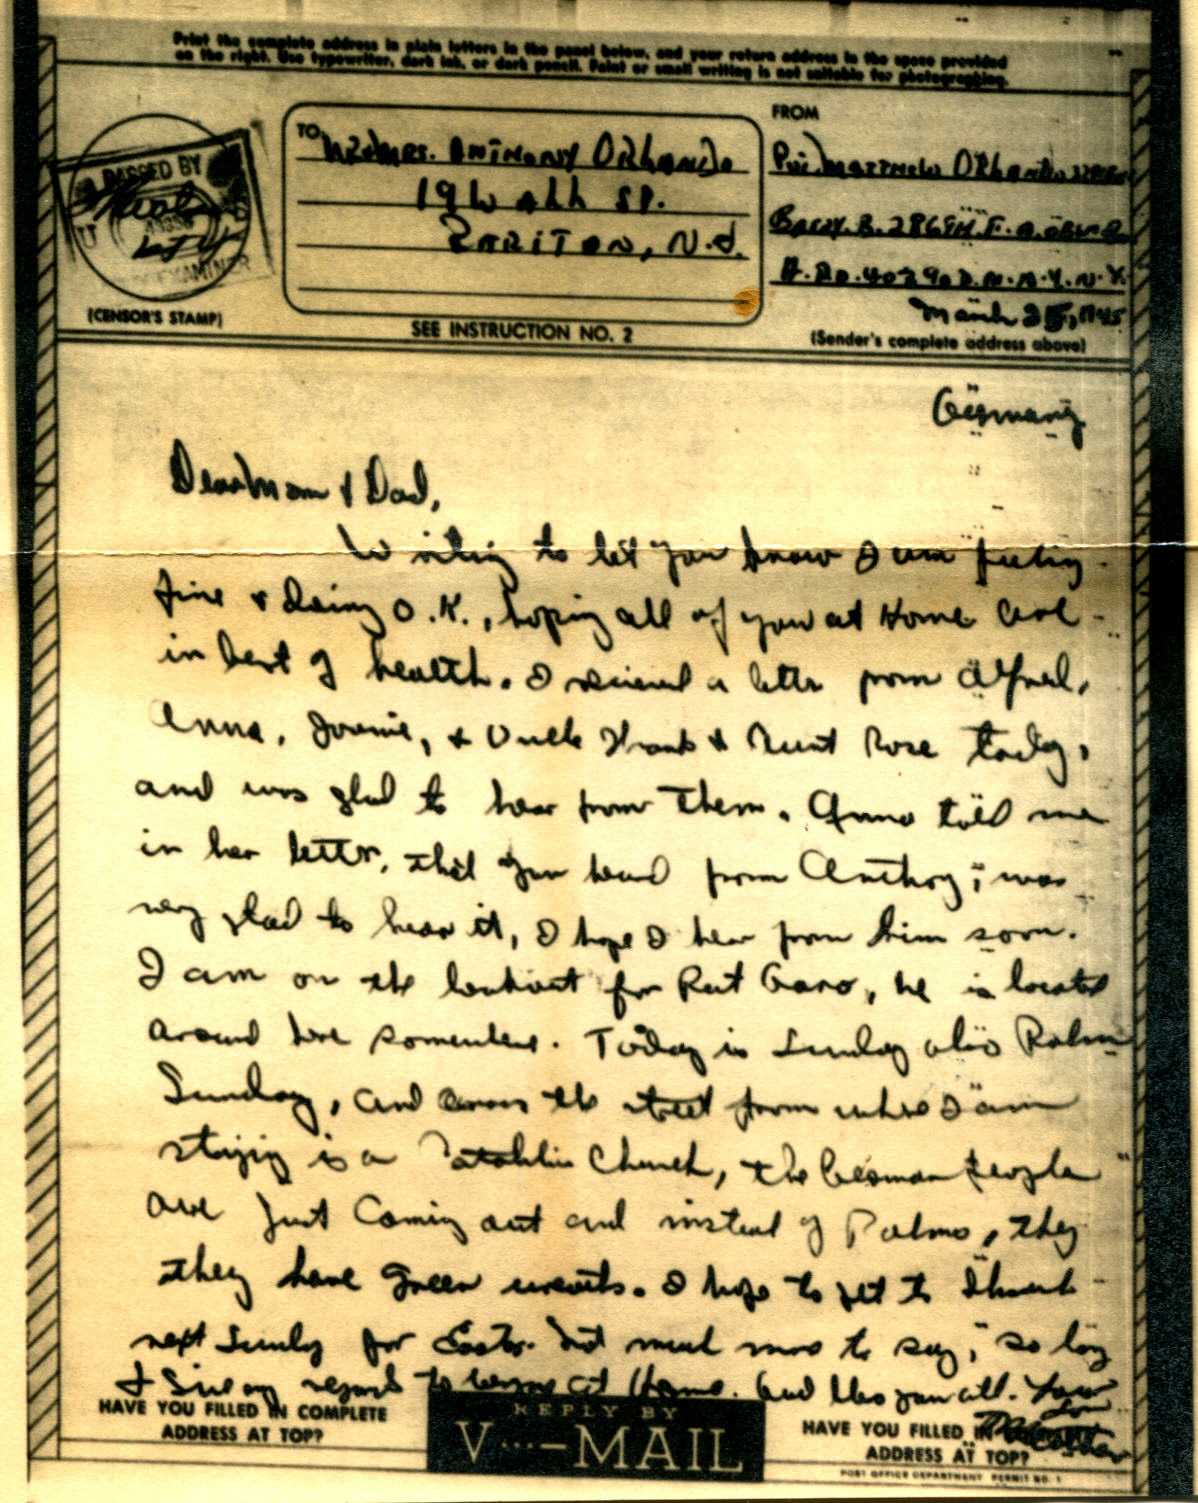 Print the complete address in plain letters in the panel below, and your return address in the space provided
on the right. Use typewriter, dark ink, or dark pencil. Faint or small writing is not suitable for photographing.
PASSED BY
EXAMINER
(CENSOR'S STAMP)
TO
Mr & Mrs. Anthony Orlando
19 Wall St.
Raritan, N.J.
SEE INSTRUCTION NO. 2
FROM
Pvt. Matthew Orlando
Batry. B. 286th F.A.
A.P.O. 403 N.Y. N.Y.
March 25, 1945
(Sender's complete address above)
Germany
Dear Mom & Dad,
Writing to let you know I am feeling
fine & doing O.K., hoping all of you at Home are
in best of health. I received a letter from Alfred,
Anna, Joanie, & Uncle Frank & Aunt Rose today,
and was glad to hear from them. Anna told me
in her letter, that you heard from Anthony, was
very glad to hear it, I hope I hear from him soon.
I am on the lookout for Pat, he is located
around here somewhere. Today is Sunday also Palm
Sunday, and across the street from where I am
staying is a Catholic Church, the German people
are just coming out and instead of Palms, they
they have green wreaths. I hope to get to Church
next Sunday for Easter. Not much more to say, so long
& give my regards to everyone at Home. God bless you all. Your
Son
Matthew
HAVE YOU FILLED IN COMPLETE
ADDRESS AT TOP?
REPLY BY
V···—MAIL
HAVE YOU FILLED IN
ADDRESS AT TOP?
POST OFFICE DEPARTMENT PERMIT NO. 1